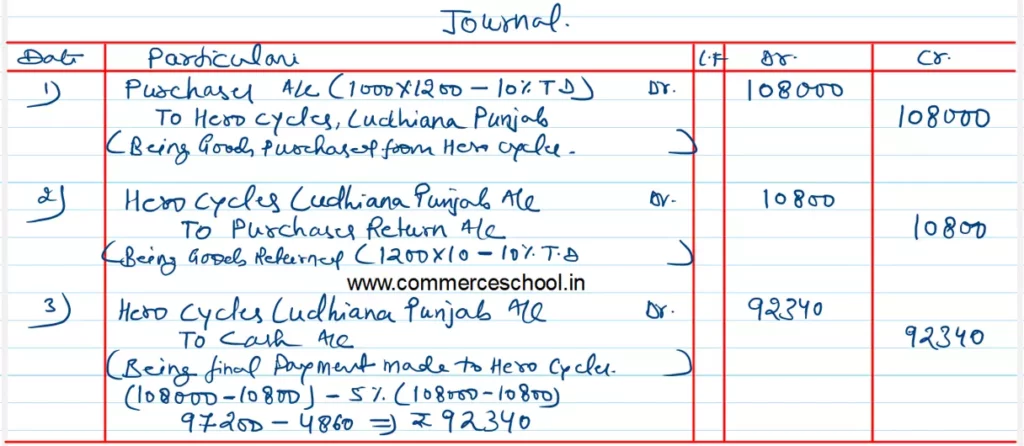 Journal.
Date Particulars L.F Dr. Cr.
1) Purchases A/c (1000X1200 - 10% T.D) Dr. 108000
To Hero Cycles, Ludhiana Punjab 108000
(Being Goods Purchased from Hero Cycles. )
2) Hero Cycles Ludhiana Punjab A/c Dr. 10800
To Purchases Return A/c 10800
(Being Goods Returned (1200X10 - 10% T.D )
www.commerceschool.in
3) Hero Cycles Ludhiana Punjab A/c Dr. 92340
To Cash A/c 92340
(Being final Payment made to Hero Cycles. )
(108000-10800) - 5% (108000-10800)
97200 - 4860 => ₹ 92340